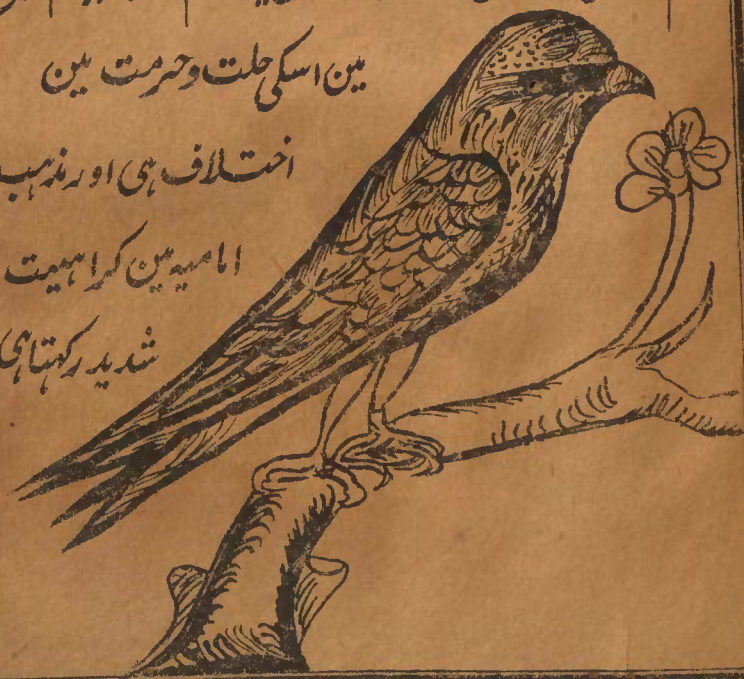 مین اسکی حلت و حرمت مین
اختلاف ہی اور مذہب
امامیہ مین کراہیت
شدید رکہتا ہی